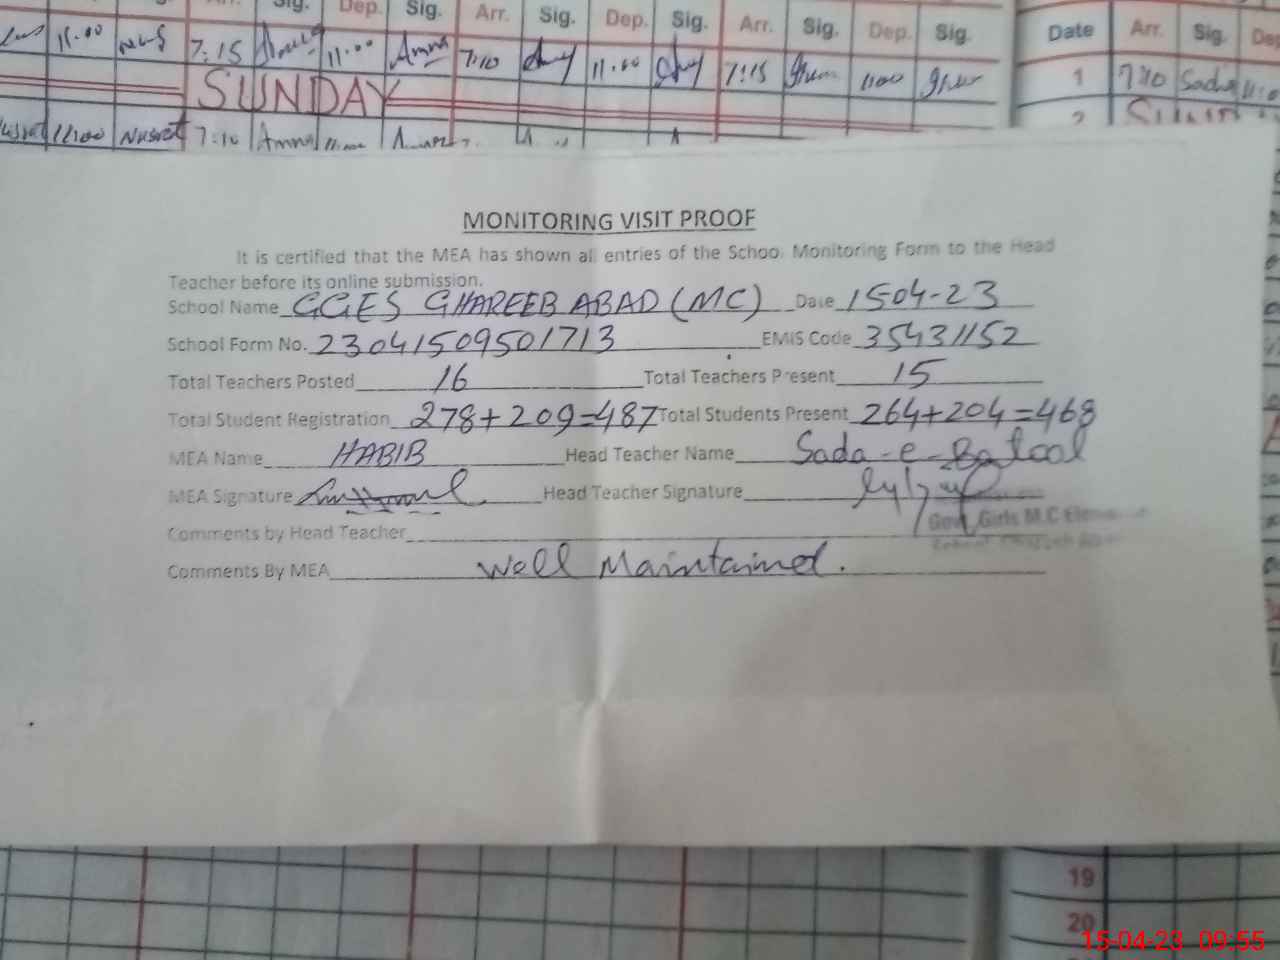 Sig. Dep. Sig. Arr. Sig. Dep. Sig. Arr. Sig. Dep. Sig.
11.00 7:15 11.00 Amna 7:10 11.00 7:15 11.00
SUNDAY
11:00 Nusrat 7:10 Amna 11.00
Date Arr. Sig.
1 7:10
2
MONITORING VISIT PROOF
It is certified that the MEA has shown all entries of the School Monitoring Form to the Head
Teacher before its online submission.
School Name GGES GHAREEB ABAD (MC) Date 1504-23
School Form No. 23041509501713 EMIS Code 35431152
Total Teachers Posted 16 Total Teachers Present 15
Total Student Registration 278+209=487 Total Students Present 264+204=468
MEA Name HABIB Head Teacher Name Sada-e-Batool
MEA Signature Head Teacher Signature
Govt Girls M.C
Comments by Head Teacher
Comments By MEA Well Maintained.
19
20
15-04-23 09:55